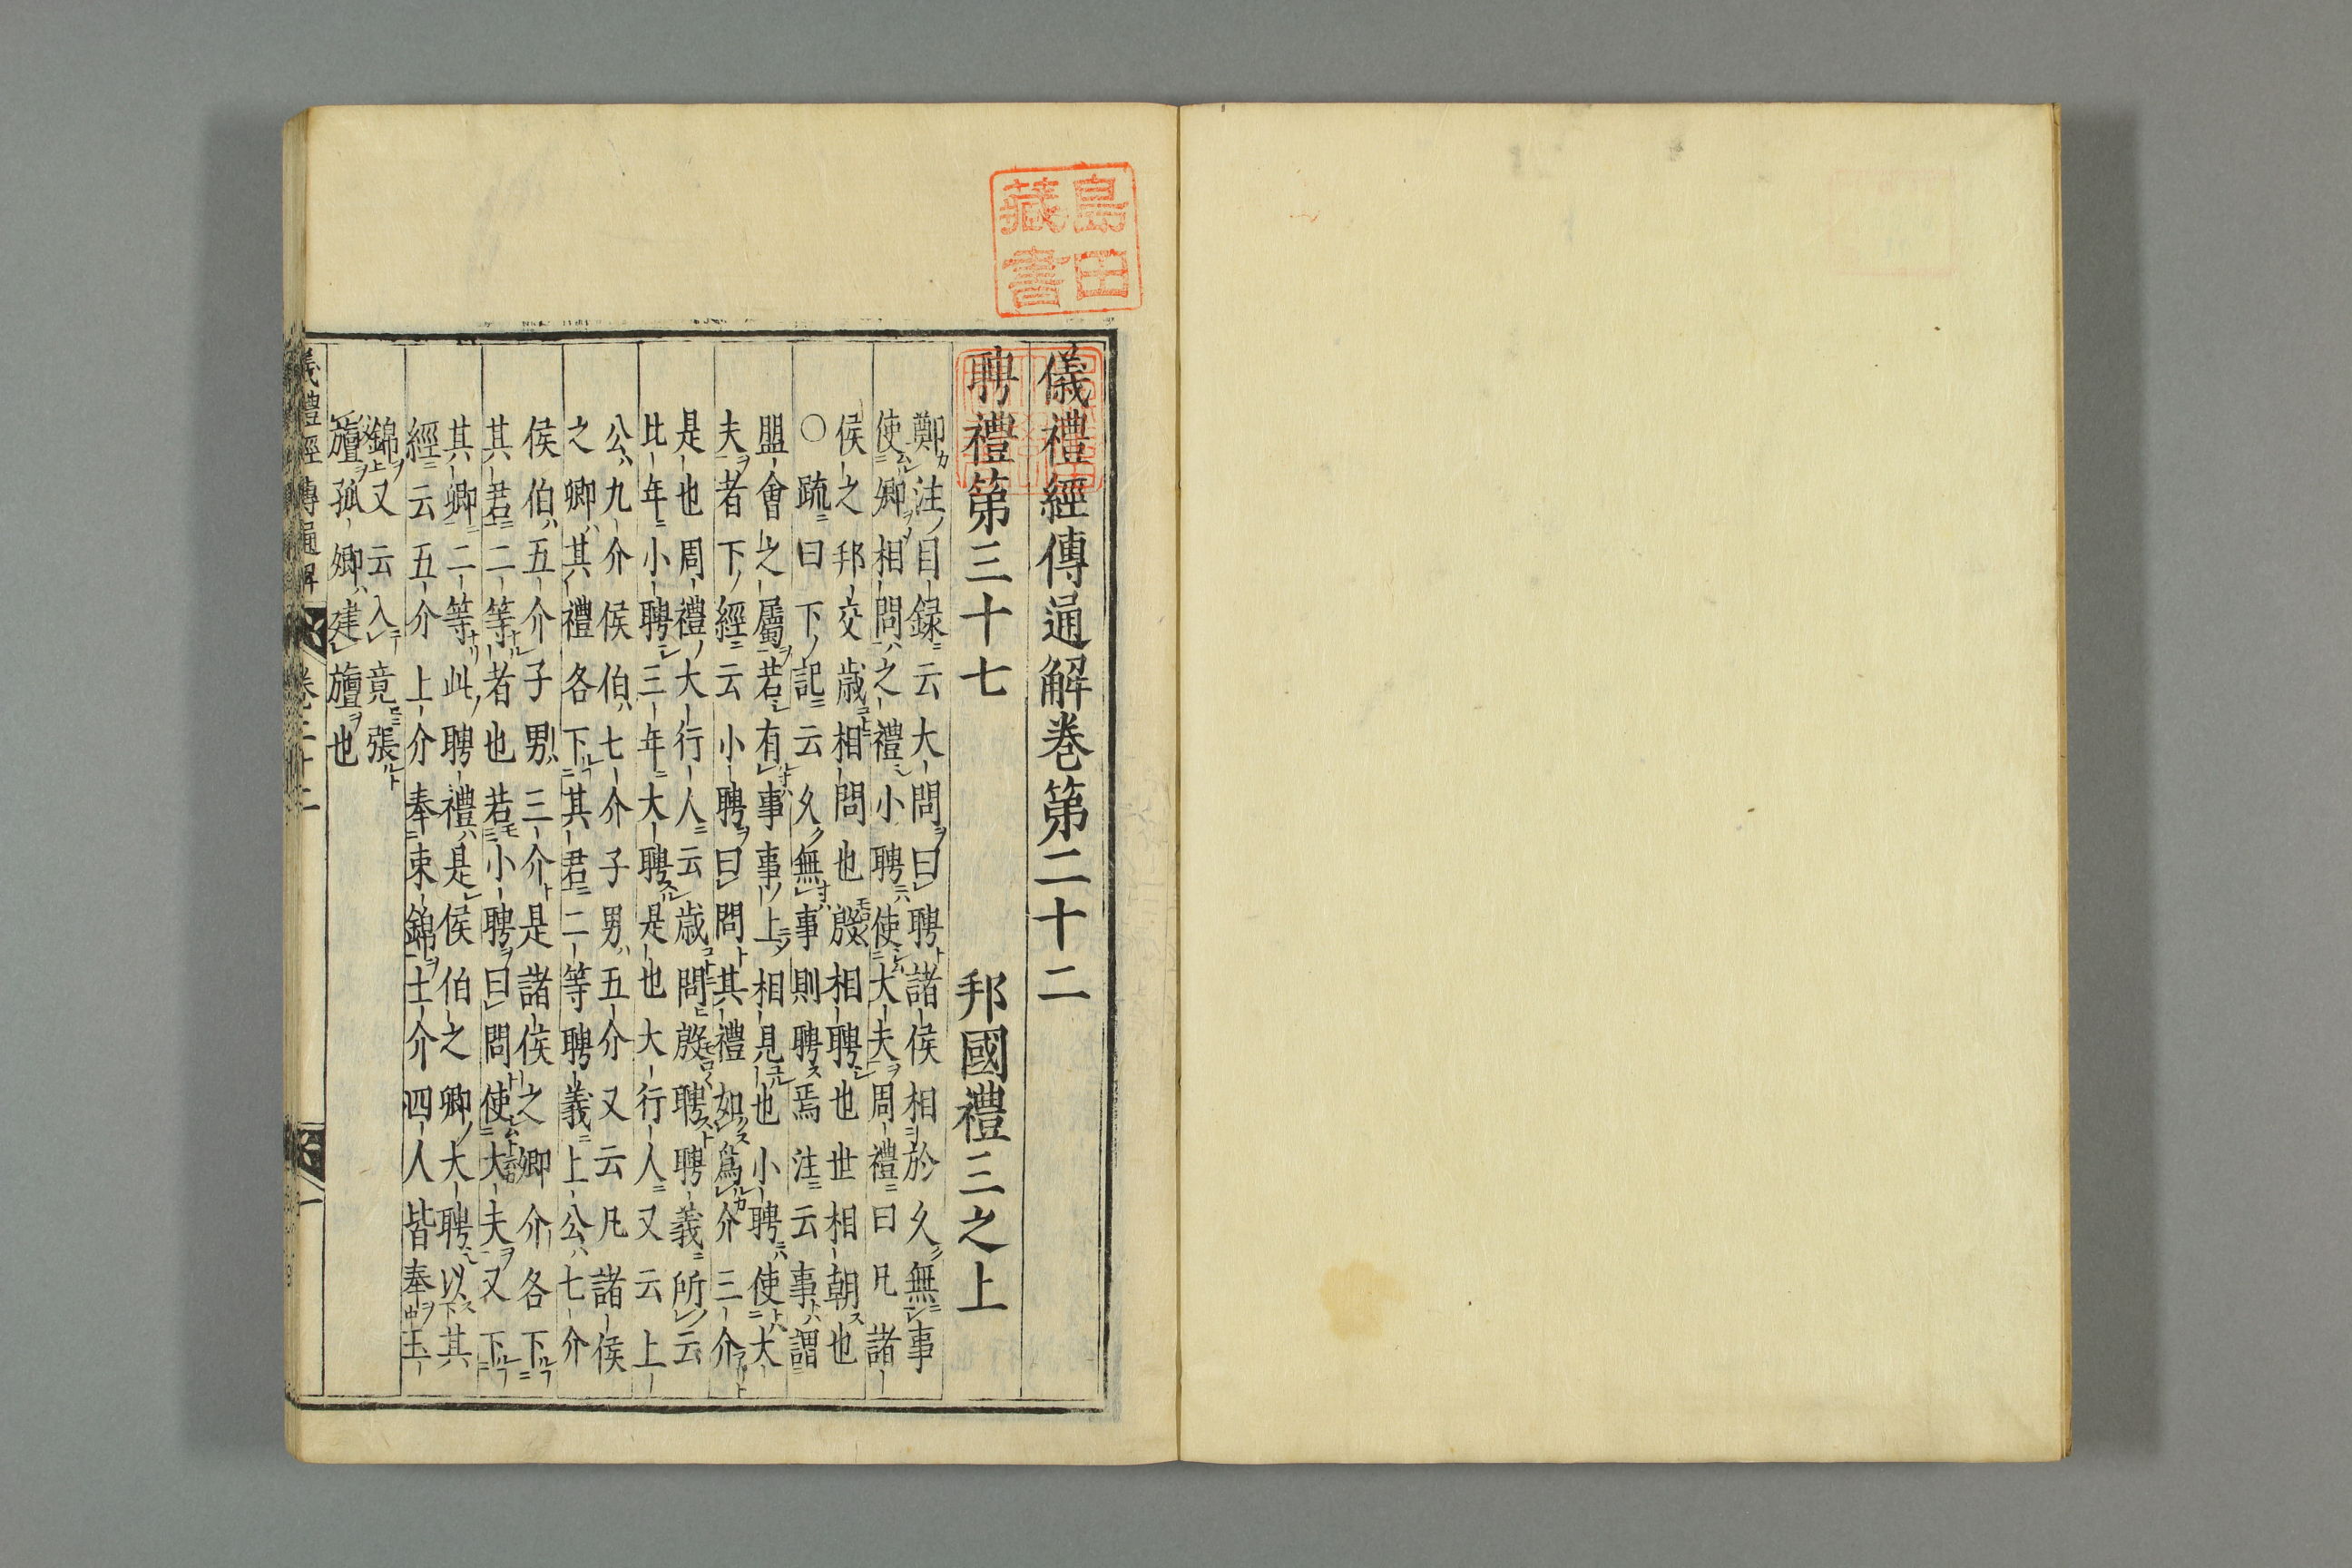 島田
藏書
儀禮經傳通解卷第二十二
聘禮第三十七 邦國禮三之上
鄭注目録云大問曰聘諸侯相於久無事
使卿相問之禮小聘使大夫周禮曰凡諸
侯之邦交歳相問也殷相聘也世相朝也
○疏曰下記云久無事則聘焉注云事謂
盟會之屬若有事事上相見也小聘使大
夫者下經云小聘曰問其禮如爲介三介
是也周禮大行人云歳問殷聘聘義所云
比年小聘三年大聘是也大行人又云上
公九介侯伯七介子男五介又云凡諸侯
之卿其禮各下其君二等聘義上公七介
侯伯五介子男三介是諸侯之卿介各下
其君二等者也若小聘曰問使大夫又下
其卿二等此聘禮是侯伯之卿大聘以其
經云五介上介奉束錦士介四人皆奉玉
錦又云入竟張
旜孤卿建旜也
儀禮經傳通解 卷二十二 一